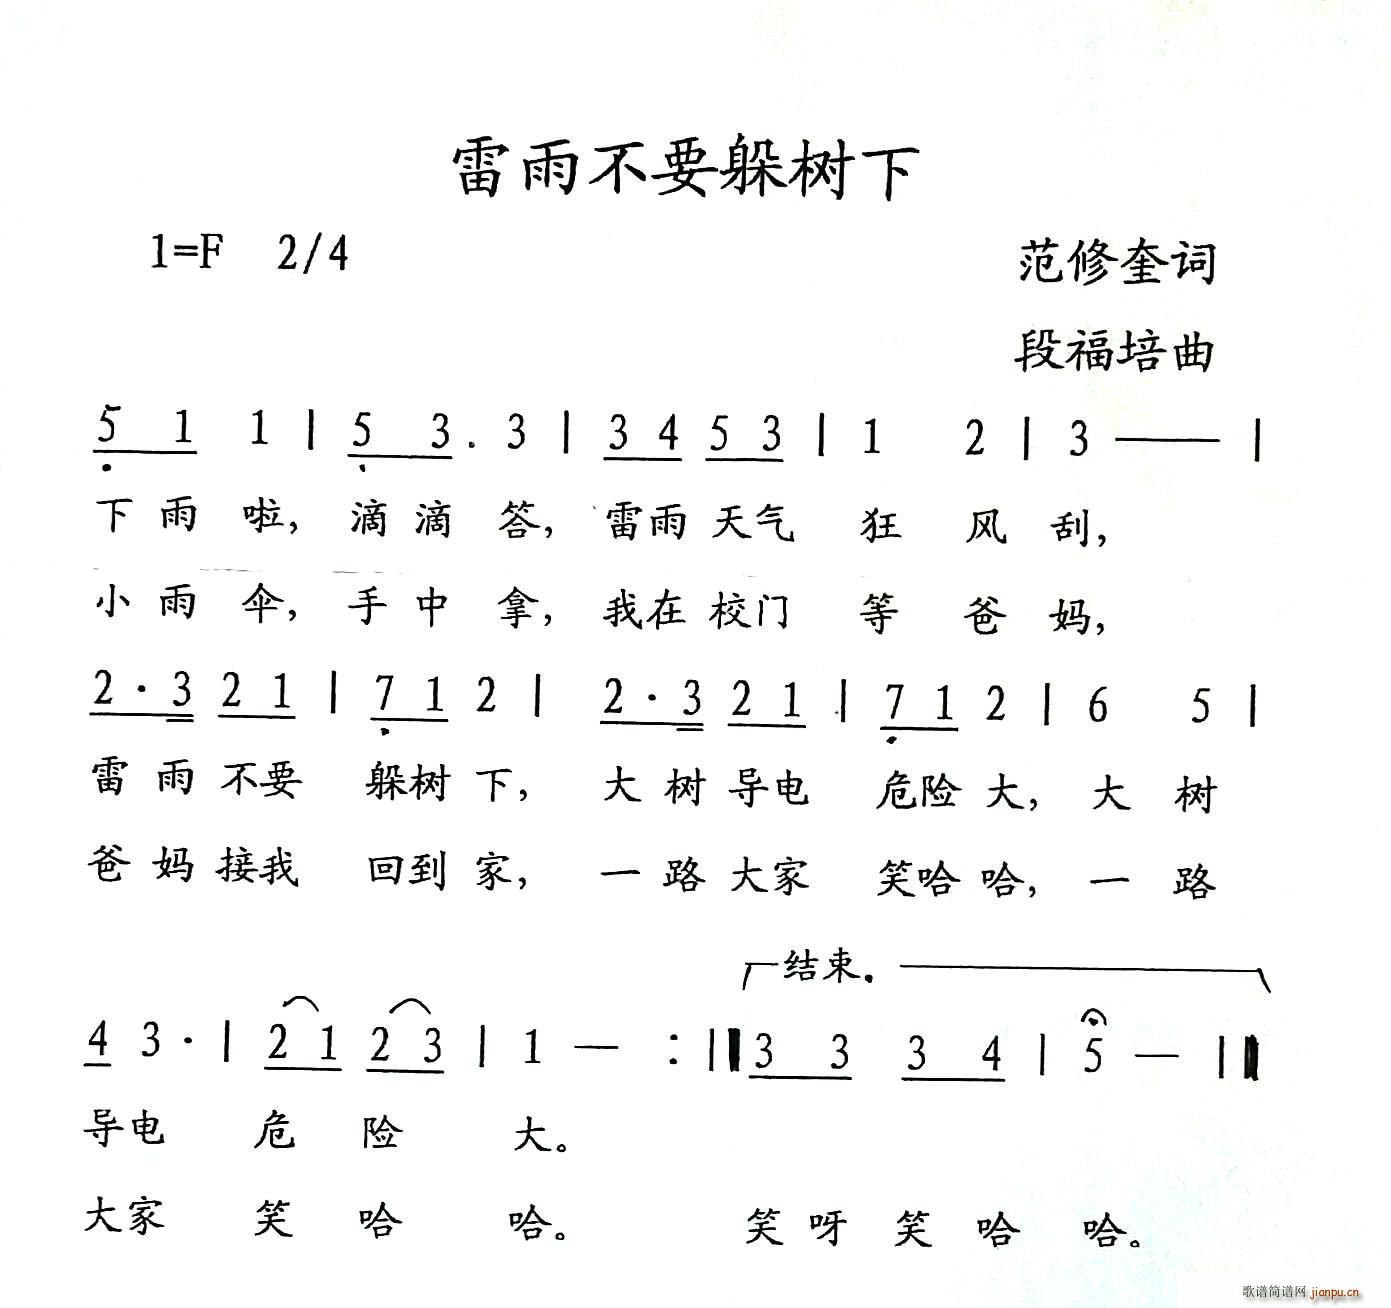 雷雨不要躲树下
1=F 2/4 范修奎词
段福培曲
5 1 1 | 5 3 . 3 | 3 4 5 3 | 1 2 | 3 —— |
下雨啦, 滴滴答, 雷雨天气 狂风刮,
小雨伞, 手中拿, 我在校门 等爸妈,
2 · 3 2 1 | 7 1 2 | 2 · 3 2 1 | 7 1 2 | 6 5 |
雷雨不要 躲树下, 大树导电 危险大, 大树
爸妈接我 回到家, 一路大家 笑哈哈, 一路
结束.
4 3 · | 2 1 2 3 | 1 — :‖ 3 3 3 4 | 5 — ‖
导电 危险 大。
大家 笑哈 哈。 笑呀笑哈 哈。
歌谱简谱网 jianpu.cn